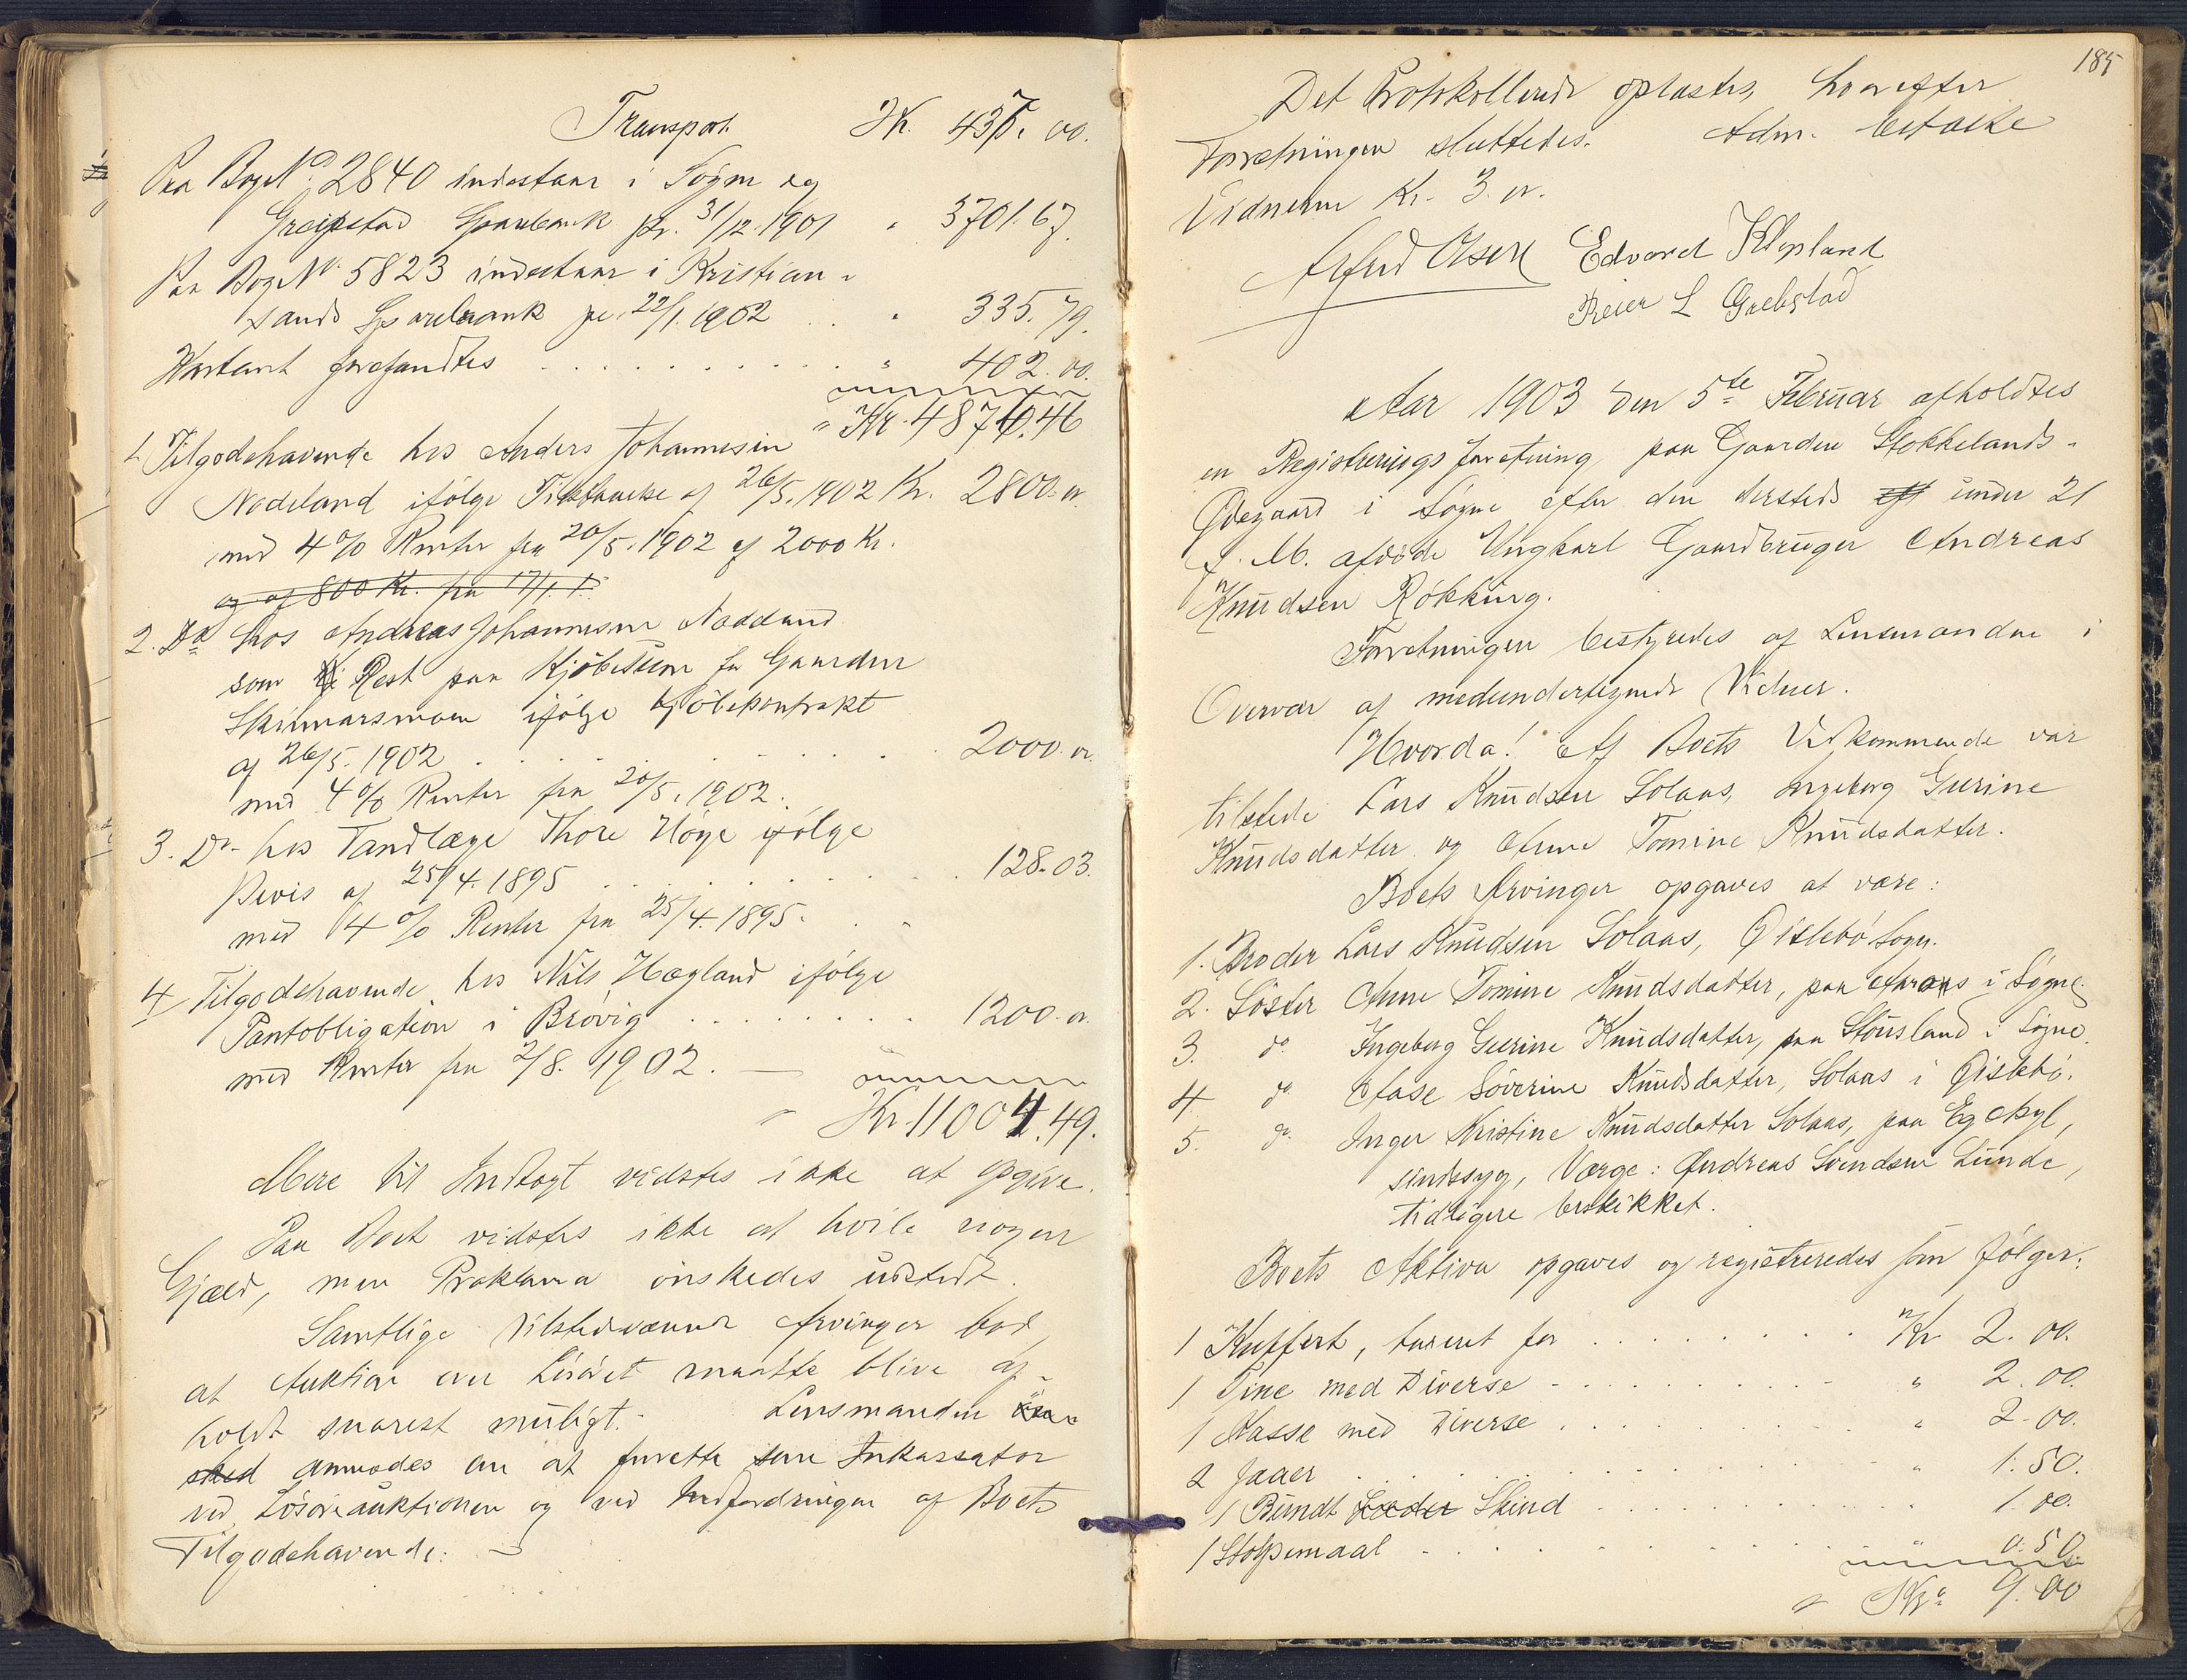 Transport. Kr. 437. 00.
Paa Bog No 2840 indestaar i Søgne og
Greipstad Sparebank pr. 31/12. 1901 " 3701. 67.
Paa Bog No 5823 indestaar i Kristian-
sands Sparebank pr. 22/1. 1902 . . " 335. 79.
Kontant forefandtes . . . . . . . . . . " 402. 00.
" Kr. 4876.46
1. Tilgodehavende hos Anders Johannesen
Nodeland ifølge Tilstaaelse af 26/5. 1902 Kr. 2800. 00
med 4 % Renter fra 20/5. 1902 af 2000 Kr.
og af 800 Kr. fra 17/1.
2. Do hos Andreas Johannesen Nodeland
som Rest paa Kjøbesum for Gaarden
Skinnarsmoen ifølge Kjøbekontrakt
af 26/5. 1902 . . . . . . . . . . 2000. 00.
med 4 % Renter fra 20/5. 1902.
3. Do hos Tandlæge Thore Høye ifølge
Bevis af 25/4. 1895 . . . . . . . . . . 128. 03.
med 4 % Renter fra 25/4. 1895.
4. Tilgodehavende hos Nils Hægland ifølge
Pantobligation i Brøvig . . . . . . . . 1200. 00.
med Renter fra 2/8. 1902. —
" Kr 11004.49.
Mere til Indtægt vidstes ikke at opgive.
Paa Boet vidstes ikke at hvile nogen
Gjæld, men Proklama ønskedes udstedt.
Samtlige tilstedværende Arvinger bad
at Auktion over Løsøret maatte blive af-
holdt snarest muligt. - Lensmanden
anmodes om at forrette som Inkassator
ved Løsøreauktionen og ved Indfordringen af Boets
Tilgodehavende: —
185
Det Protokollerede oplæstes, hvorefter
Forretningen sluttedes. Adm. betalte
Vidnerne Kr. 3. 00.
Alfred Olsen Edvard Klepland
Peier L Grebstad
Aar 1903 den 5te Februar afholdtes
en Registreringsforretning paa Gaarden Stokkelands-
Ødegaard i Søgne efter den dersteds eft under 21
f. M. afdøde Ungkarl Gaardbruger Andreas
Knudsen Røkking.
Forretningen bestyredes af Lensmanden i
Overvær af medundertegnede Vidner.
Hvorda! Af Boets Vedkommende var
tilstede Lars Knudsen Solaas, Ingeborg Gurine
Knudsdatter og Anne Tomine Knudsdatter.
Boets Arvinger opgaves at være:
1. Broder Lars Knudsen Solaas, Øislebø Sogn.
2. Søster Anne Tomine Knudsdatter, paa Aaraas i Søgne.
3. do Ingeborg Gurine Knudsdatter, paa Stousland i Søgne.
4. do Aase Søverine Knudsdatter, Solaas i Øislebø.
5. do Inger Kristine Knudsdatter Solaas, paa Eg Asyl,
sindssyg, Værge: Andreas Svendsen Lunde,
tidligere beskikket.
Boets Aktiva opgaves og registreredes som følger:
1 Kuffert, taxeret for . . . . . . . . . Kr 2. 00.
1 Tine med Diverse - . . . . . . . . . " 2. 00.
1 Kasse med Diverse . . . . . . . . " 2. 00.
2 Faaer . . . . . . . . . . . . . . " 1. 50.
1 Bundt Læder Skind . . . . . . . . 1. 00.
1 Stolpemaal . . . . . . . . . . . . " 0. 50.
" Kr. 9. 00